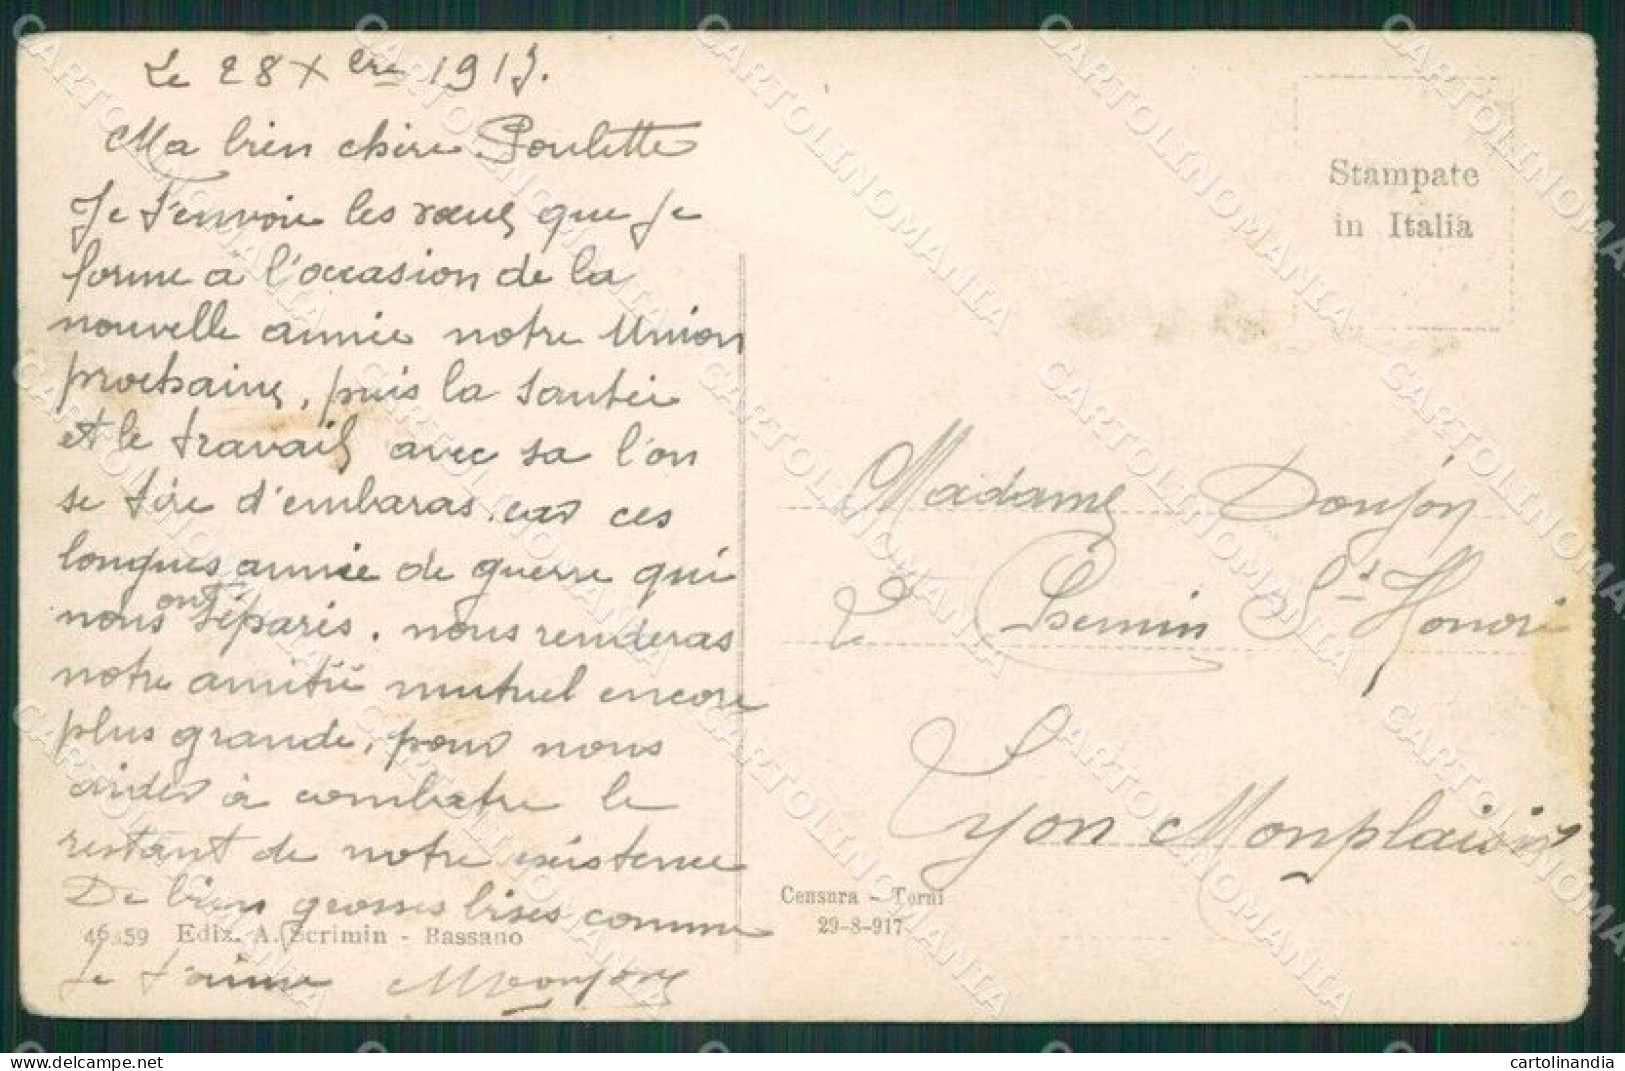 Le 28 Xbre 1917.
Ma bien chère Poulette
Je t'envoie les vœux que je
forme a l'occasion de la
nouvelle année notre Union
prochaine, puis la santée
et le travail avec sa l'on
se tire d'embaras. car ces
longues année de guerre qui
nous ont séparés. nous renderas
notre amitié mutuel encore
plus grande, pour nous
aider à combatre le
restant de notre existence
De bien grosses bises comme
Je t'aime
Stampate
in Italia
Madame Donjon
2 Chemin St Honoré
Lyon Monplaisir
Censura - Terni
29-8-917
46359 Ediz. A. Scrimin - Bassano
CARTOLINOMANIA
cartolinandia